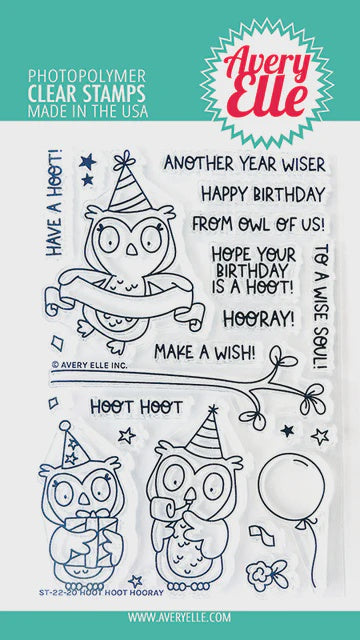 PHOTOPOLYMER
CLEAR STAMPS
MADE IN THE USA
Avery
Elle
HAVE A HOOT!
ANOTHER YEAR WISER
HAPPY BIRTHDAY
FROM OWL OF US!
HOPE YOUR
BIRTHDAY
IS A HOOT!
TO A WISE SOUL!
HOORAY!
MAKE A WISH!
© AVERY ELLE INC.
HOOT HOOT
ST-22-20 HOOT HOOT HOORAY
WWW.AVERYELLE.COM